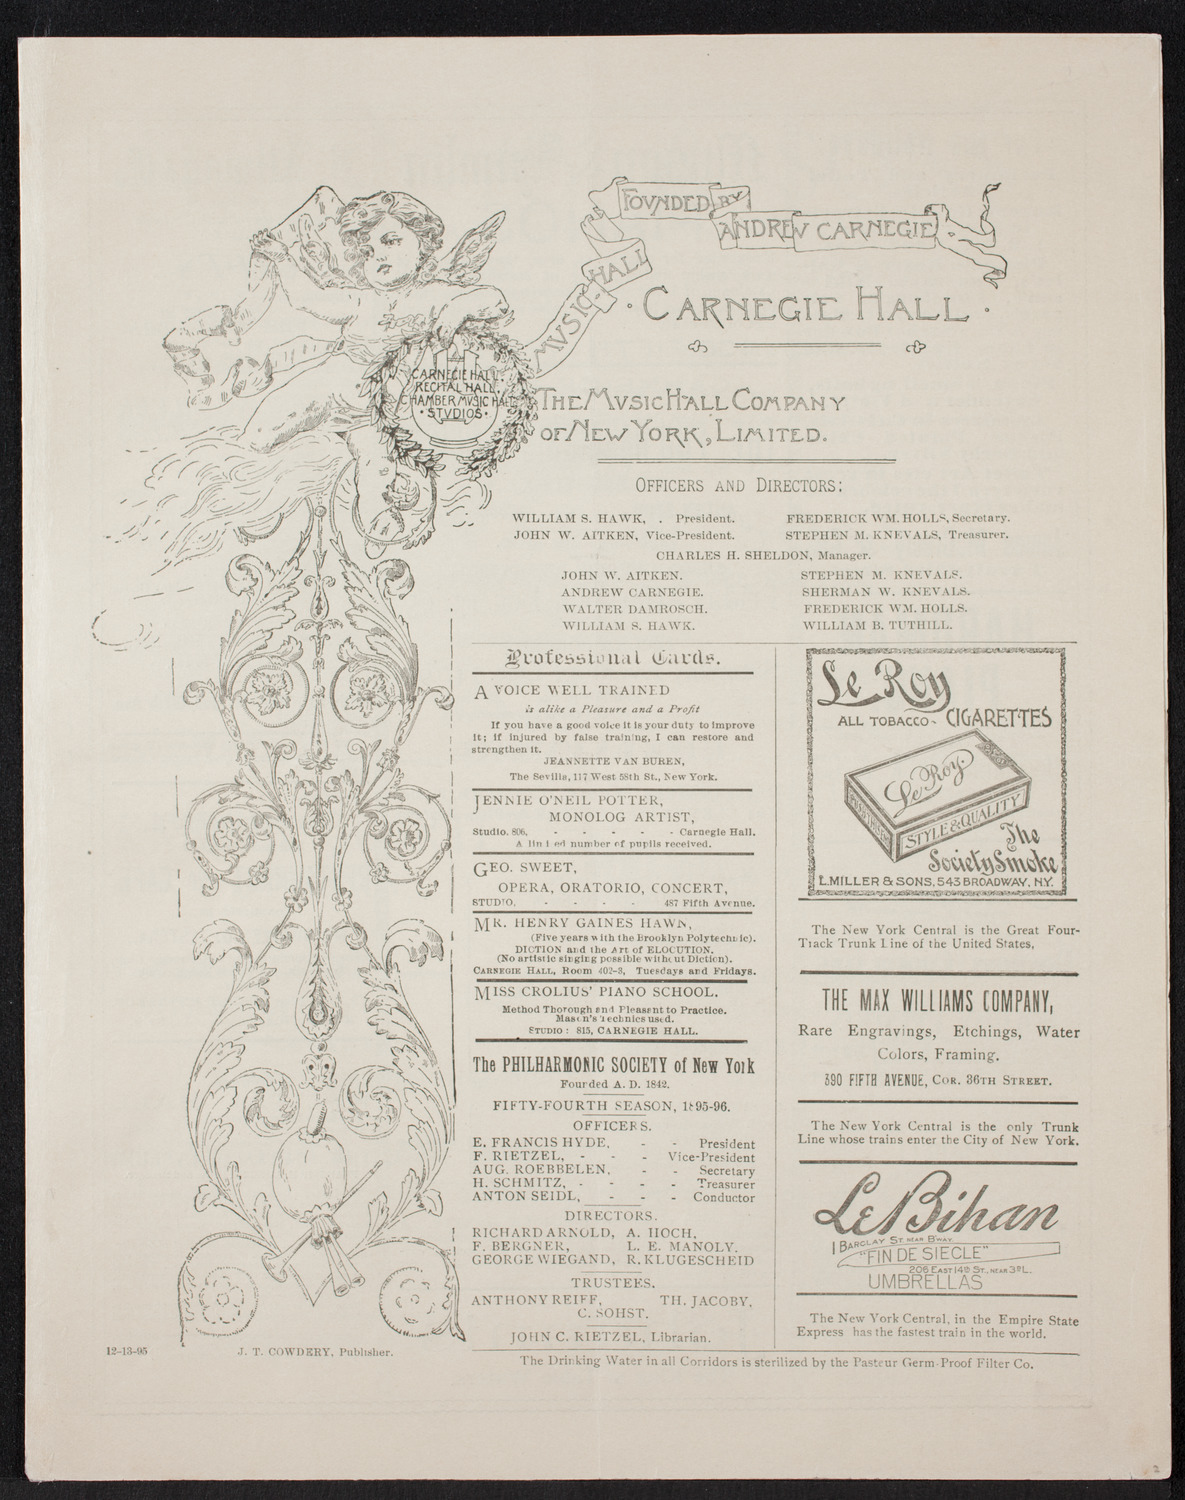 FOVNDED BY
ANDREW CARNEGIE
MVSIC-HALL
· CARNEGIE HALL ·
CARNEGIE HALL.
RECITAL HALL.
CHAMBER MVSIC HALL
· STVDIOS ·
THE MVSIC HALL COMPANY
OF NEW YORK, LIMITED.
OFFICERS AND DIRECTORS:
WILLIAM S. HAWK, . President. FREDERICK WM. HOLLS, Secretary.
JOHN W. AITKEN, Vice-President. STEPHEN M. KNEVALS, Treasurer.
CHARLES H. SHELDON, Manager.
JOHN W. AITKEN. STEPHEN M. KNEVALS.
ANDREW CARNEGIE. SHERMAN W. KNEVALS.
WALTER DAMROSCH. FREDERICK WM. HOLLS.
WILLIAM S. HAWK. WILLIAM B. TUTHILL.
Professional Cards.
A VOICE WELL TRAINED
is alike a Pleasure and a Profit
If you have a good voice it is your duty to improve
it; if injured by false training, I can restore and
strengthen it.
JEANNETTE VAN BUREN,
The Sevilla, 117 West 58th St., New York.
JENNIE O'NEIL POTTER,
MONOLOG ARTIST,
Studio, 806, - - - - - Carnegie Hall.
A limited number of pupils received.
GEO. SWEET,
OPERA, ORATORIO, CONCERT,
STUDIO, - - - - 487 Fifth Avenue.
MR. HENRY GAINES HAWN,
(Five years with the Brooklyn Polytechnic).
DICTION and the Art of ELOCUTION.
(No artistic singing possible without Diction).
CARNEGIE HALL, Room 402-3, Tuesdays and Fridays.
MISS CROLIUS' PIANO SCHOOL.
Method Thorough and Pleasant to Practice.
Mason's Technics used.
STUDIO: 815, CARNEGIE HALL.
The PHILHARMONIC SOCIETY of New York
Founded A. D. 1842.
FIFTY-FOURTH SEASON, 1895-96.
OFFICERS.
E. FRANCIS HYDE, - - President
F. RIETZEL, - - - Vice-President
AUG. ROEBBELEN, - - Secretary
H. SCHMITZ, - - - - Treasurer
ANTON SEIDL, - - - Conductor
DIRECTORS.
RICHARD ARNOLD, A. HOCH,
F. BERGNER, L. E. MANOLY,
GEORGE WIEGAND, R. KLUGESCHEID
TRUSTEES.
ANTHONY REIFF, TH. JACOBY,
C. SOHST.
JOHN C. RIETZEL, Librarian.
Le Roy
ALL TOBACCO- CIGARETTES
Le Roy.
STYLE & QUALITY
The
Society Smoke
L. MILLER & SONS, 543 BROADWAY, N.Y.
The New York Central is the Great Four-
Track Trunk Line of the United States,
THE MAX WILLIAMS COMPANY,
Rare Engravings, Etchings, Water
Colors, Framing.
390 FIFTH AVENUE, COR. 36TH STREET.
The New York Central is the only Trunk
Line whose trains enter the City of New York.
Le Bihan
1 BARCLAY ST. NEAR B'WAY.
"FIN DE SIECLE"
206 EAST 14th ST., NEAR 3D L.
UMBRELLAS
The New York Central, in the Empire State
Express has the fastest train in the world.
12-13-95 J. T. COWDERY, Publisher.
The Drinking Water in all Corridors is sterilized by the Pasteur Germ-Proof Filter Co.
2